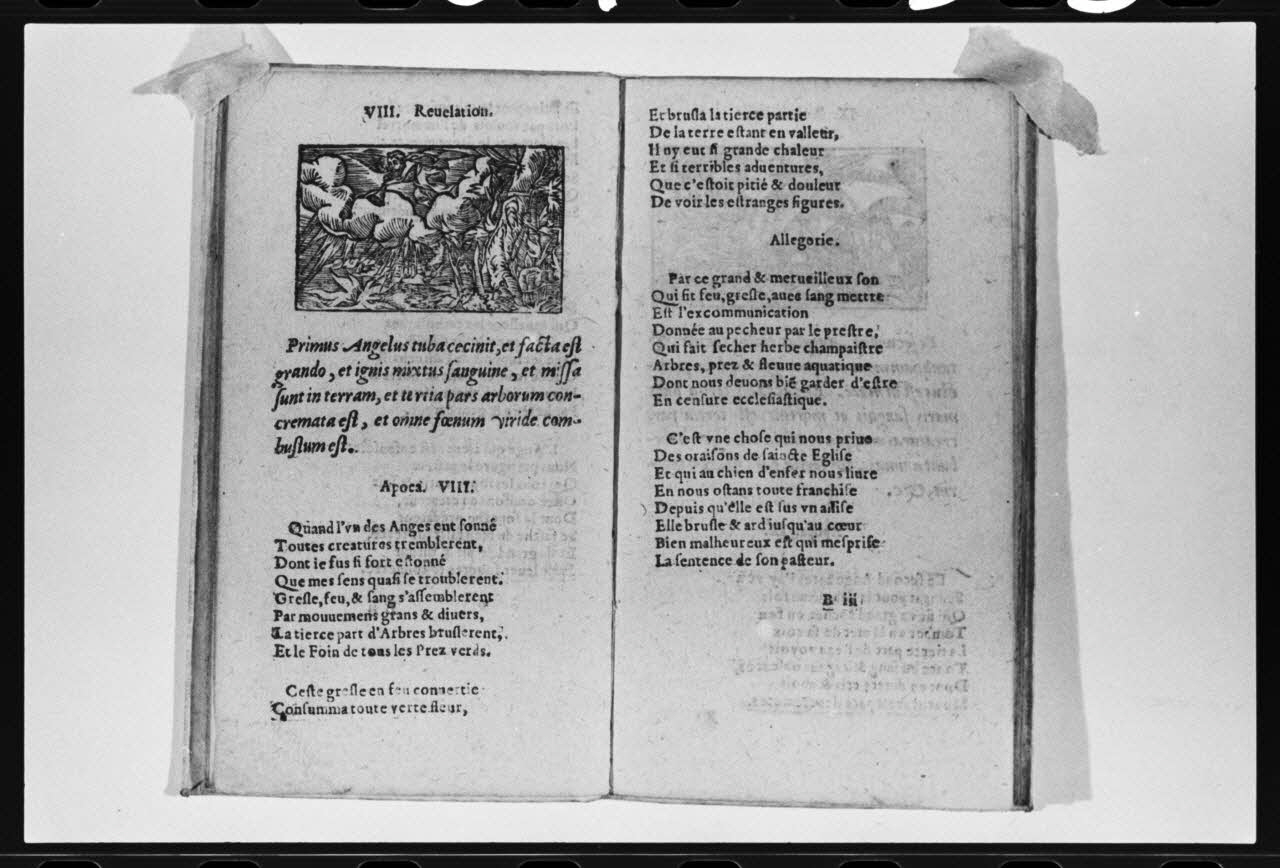 VIII. Reuelation.
Primus Angelus tuba cecinit, et facta est
grando, et ignis mixtus sanguine, et missa
sunt in terram, et tertia pars arborum con-
cremata est, et omne fœnum viride com-
bustum est.
Apoca. VIII.
Quand l'vn des Anges eut sonné
Toutes creatures tremblerent,
Dont ie fus si fort estonné
Que mes sens quasi se troublerent.
Gresle, feu, & sang s'assemblerent
Par mouuemens grans & diuers,
La tierce part d'Arbres bruslerent,
Et le Foin de tous les Prez verds.
Ceste gresle en feu conuertie
Consumma toute verte fleur,
Et brusla la tierce partie
De la terre estant en valleur,
Il ny eut si grande chaleur
Et si terribles aduentures,
Que c'estoit pitié & douleur
De voir les estranges figures.
Allegorie.
Par ce grand & merueilleux son
Qui fit feu, gresle, auec sang mettre
Est l'excommunication
Donnée au pecheur par le prestre,
Qui fait secher herbe champaistre
Arbres, prez & fleuue aquatique
Dont nous deuons biẽ garder d'estre
En censure ecclesiastique.
C'est vne chose qui nous priue
Des oraisons de saincte Eglise
Et qui au chien d'enfer nous liure
En nous ostans toute franchise
Depuis qu'elle est sus vn assise
Elle brusle & ard iusqu'au cœur
Bien malheureux est qui mesprise
La sentence de son pasteur.
B iii.